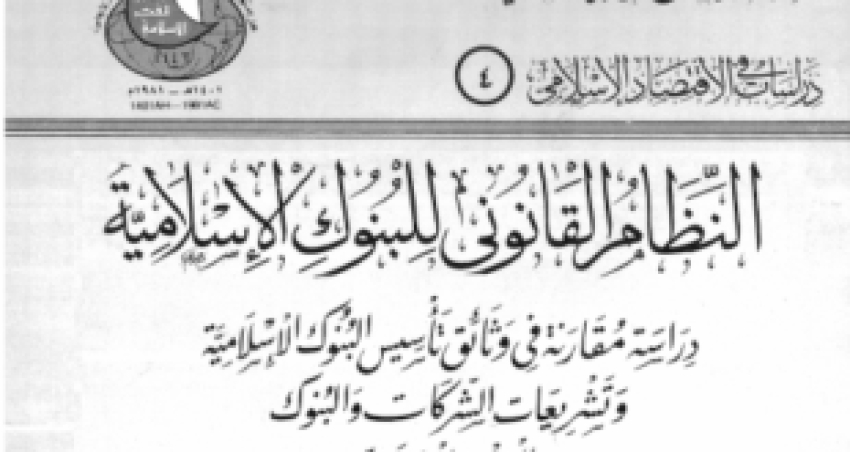 دراسات في الاقتصاد الإسلامي ٤
١٤٠١هـ - ١٩٨١م
1401AH - 1981AC
النِّظَامُ القَانُونِي لِلبُنُوكِ الإِسْلَامِيَّة
دِرَاسَة مُقَارَنَة فِي وَثَائِق تَأْسِيس البُنُوك الإِسْلَامِيَّة
وَتَشْرِيعَات الشَّرِكَات وَالبُنُوك